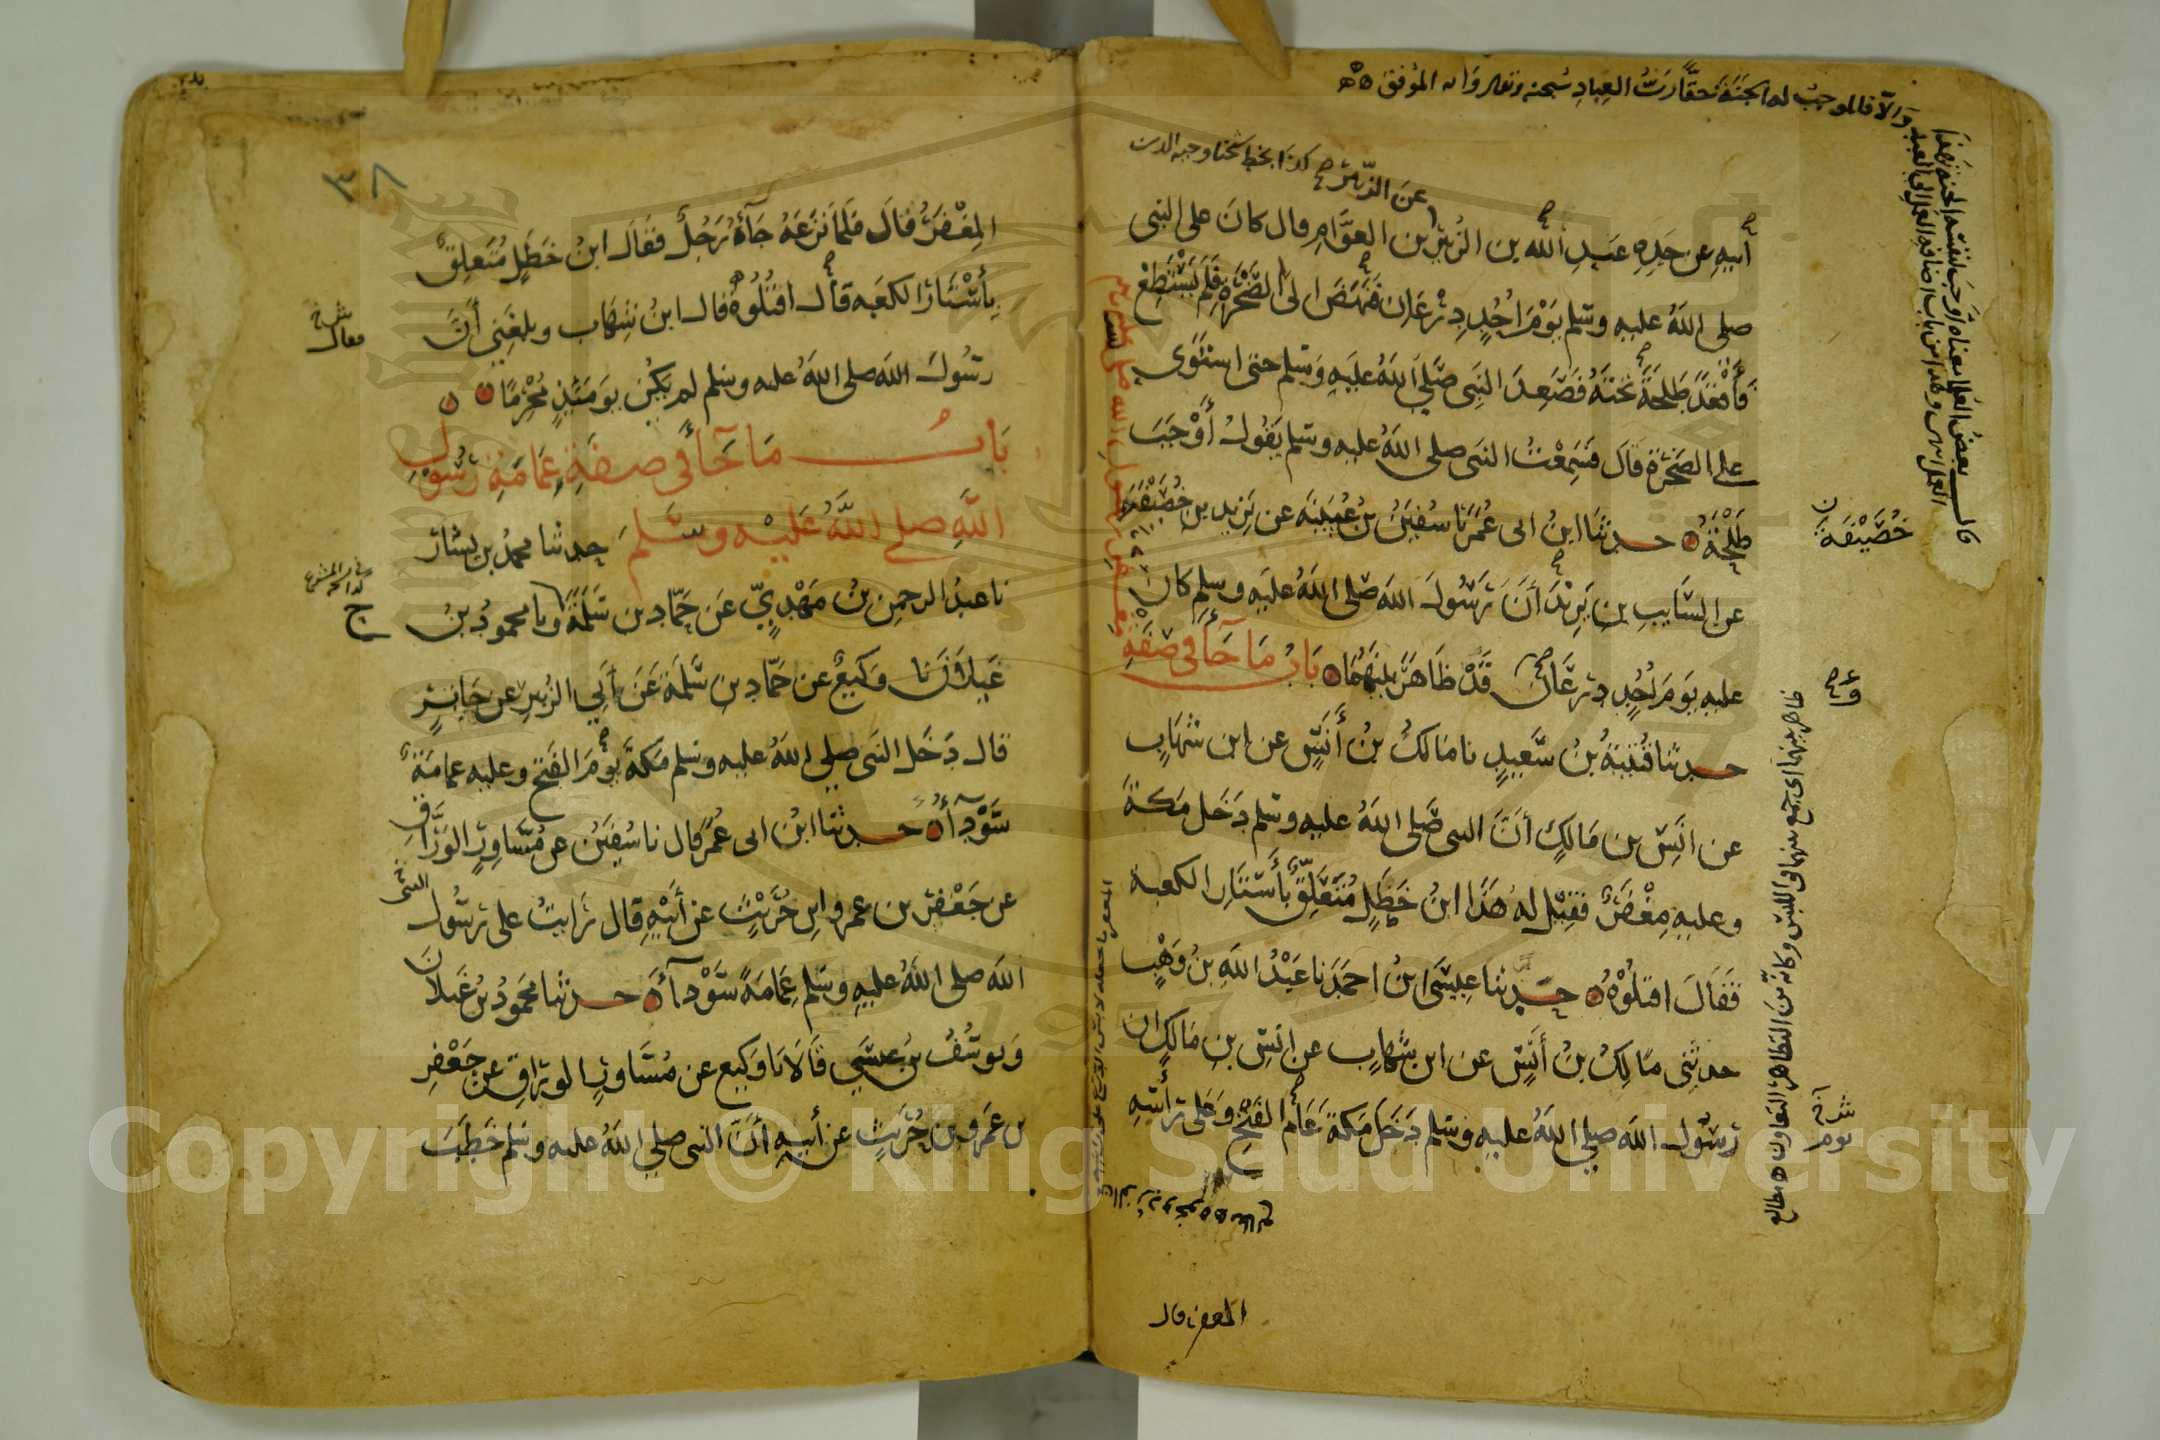 والا فالموجب له الجنة حقا رب العباد سبحنه وتعالى والله الموفق
عن الزبير صح كذا بخط شيخنا وجيه الدين
أبيه عن جده عبد الله بن الزبير بن العوام قال كان على النبي
صلى الله عليه وسلم يوم احد درعان فنهض الى الصخرة فلم يستطع
فأقعد طلحة تحته فصعد النبي صلى الله عليه وسلم حتى استوى
على الصخرة قال فسمعت النبي صلى الله عليه وسلم يقول أوجب
طلحة حدثنا ابن ابى عمر نا سفين بن عيينة عن يزيد بن خصيفة
عن السايب بن يزيد أن رسول الله صلى الله عليه وسلم كان
عليه يوم احد درعان قد ظاهر بينهما باب ما جآء في صفة
مغفر رسول الله صلى الله عليه وسلم
حدثنا قتيبة بن سعيد نا مالك بن أنس عن ابن شهاب
عن انس بن مالك أن النبي صلى الله عليه وسلم دخل مكة
وعليه مغفر فقيل له هذا ابن خطل متعلق بأستار الكعبة
فقال اقتلوه حدثنا عيسى ابن احمد نا عبد الله بن وهب
حدثنى مالك بن أنس عن ابن شهاب عن انس بن مالك ان
رسول الله صلى الله عليه وسلم دخل مكة عام الفتح وعلى رأسه
المغفر قال
قال بعض العلما معناه أوجب لنفسه الجنة بهذا
خصيفة
ظاهر بينهما اى جمع بينهما فى اللبس وكأنه من التظاهر التعاون
يوم
٣٨
المغفر قال فلما نزعه جآءه رجل فقال ابن خطل متعلق
بأستار الكعبه قال اقتلوه قال ابن شهاب وبلغني أن
فقال
رسول الله صلى الله عليه وسلم لم يكن يومئذ محرما
باب ما جآء في صفة عمامة رسول
الله صلى الله عليه وسلم حدثنا محمد بن بشار
نا عبد الرحمن بن مهدي عن حماد بن سلمة ونا محمود بن
غيلان نا وكيع عن حماد بن سلمة عن أبي الزبير عن جابر
قال دخل النبي صلى الله عليه وسلم مكة يوم الفتح وعليه عمامة
سودآء حدثنا ابن ابى عمر قال نا سفين عن مساور الوراق
عن جعفر بن عمرو ابن حريث عن أبيه قال رايت على رسول
الله صلى الله عليه وسلم عمامة سودآء حدثنا محمود بن غيلان
ويوسف بن عيسى قالا نا وكيع عن مساور الوراق عن جعفر
بن عمرو بن حريث عن أبيه أن النبى صلى الله عليه وسلم خطب
Copyright © King Saud University